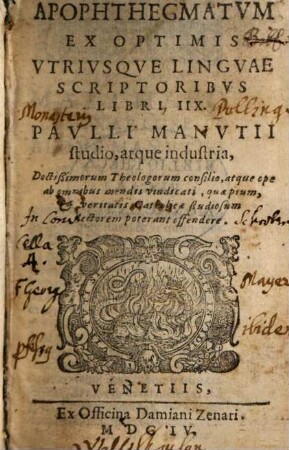 APOPHTHEGMATVM
EX OPTIMIS
VTRIVSQVE LINGVAE
SCRIPTORIBVS
LIBRI, IIX.
Monasterij Polling
PAVLLI MANVTII
studio, atque industria,
Doctissimorum Theologorum consilio, atque ope
ab omnibus mendis vindicati, quæ pium,
& veritatis Catholicæ studiosum
lectorem poterant offendere.
In
Cella
A.
F Georg
Mayer
VENETIIS,
Ex Officina Damiani Zenari.
M D C IV